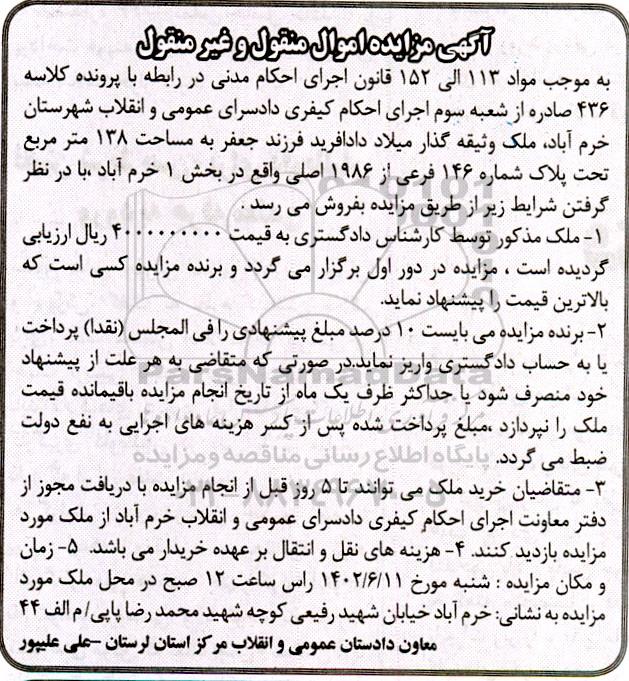 آگهی مزایده اموال منقول و غیر منقول
به موجب مواد ۱۱۳ الی ۱۵۲ قانون اجرای احکام مدنی در رابطه با پرونده کلاسه
۴۳۶ صادره از شعبه سوم اجرای احکام کیفری دادسرای عمومی و انقلاب شهرستان
خرم آباد، ملک وثیقه گذار میلاد دادافرید فرزند جعفر به مساحت ۱۳۸ متر مربع
تحت پلاک شماره ۱۴۶ فرعی از ۱۹۸۶ اصلی واقع در بخش ۱ خرم آباد ،با در نظر
گرفتن شرایط زیر از طریق مزایده بفروش می رسد .
۱- ملک مذکور توسط کارشناس دادگستری به قیمت ۴۰۰۰۰۰۰۰۰۰۰ ریال ارزیابی
گردیده است ، مزایده در دور اول برگزار می گردد و برنده مزایده کسی است که
بالاترین قیمت را پیشنهاد نماید.
۲- برنده مزایده می بایست ۱۰ درصد مبلغ پیشنهادی را فی المجلس (نقدا) پرداخت
یا به حساب دادگستری واریز نماید.در صورتی که متقاضی به هر علت از پیشنهاد
خود منصرف شود یا حداکثر ظرف یک ماه از تاریخ انجام مزایده باقیمانده قیمت
ملک را نپردازد ،مبلغ پرداخت شده پس از کسر هزینه های اجرایی به نفع دولت
ضبط می گردد.
پایگاه اطلاع رسانی مناقصه و مزایده
۳- متقاضیان خرید ملک می توانند تا ۵ روز قبل از انجام مزایده با دریافت مجوز از
دفتر معاونت اجرای احکام کیفری دادسرای عمومی و انقلاب خرم آباد از ملک مورد
مزایده بازدید کنند. ۴- هزینه های نقل و انتقال بر عهده خریدار می باشد. ۵- زمان
و مکان مزایده : شنبه مورخ ۱۴۰۲/۶/۱۱ راس ساعت ۱۲ صبح در محل ملک مورد
مزایده به نشانی: خرم آباد خیابان شهید رفیعی کوچه شهید محمد رضا پاپی/ م الف ۴۴
معاون دادستان عمومی و انقلاب مرکز استان لرستان -علی علیپور